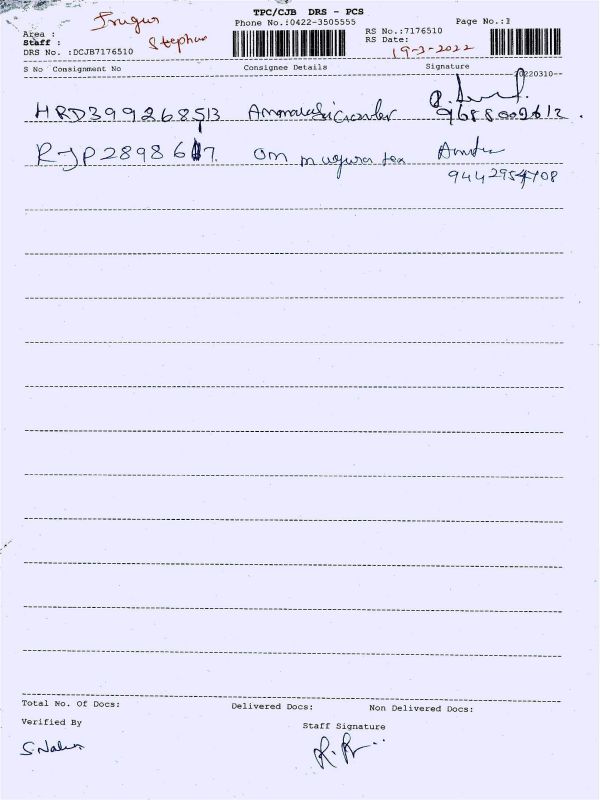 TPC/CJB DRS - PCS
Irugur
Phone No.:0422-3505555
Page No.:1
Area :
RS No.:7176510
Staff : Stephen
RS Date:
19-3-2022
DRS No. :DCJB7176510
S No Consignment No Consignee Details Signature
20220310--
HRD399268513
9688002612
RJP2898617. om
9442954708
Total No. Of Docs: Delivered Docs: Non Delivered Docs:
Verified By
Staff Signature